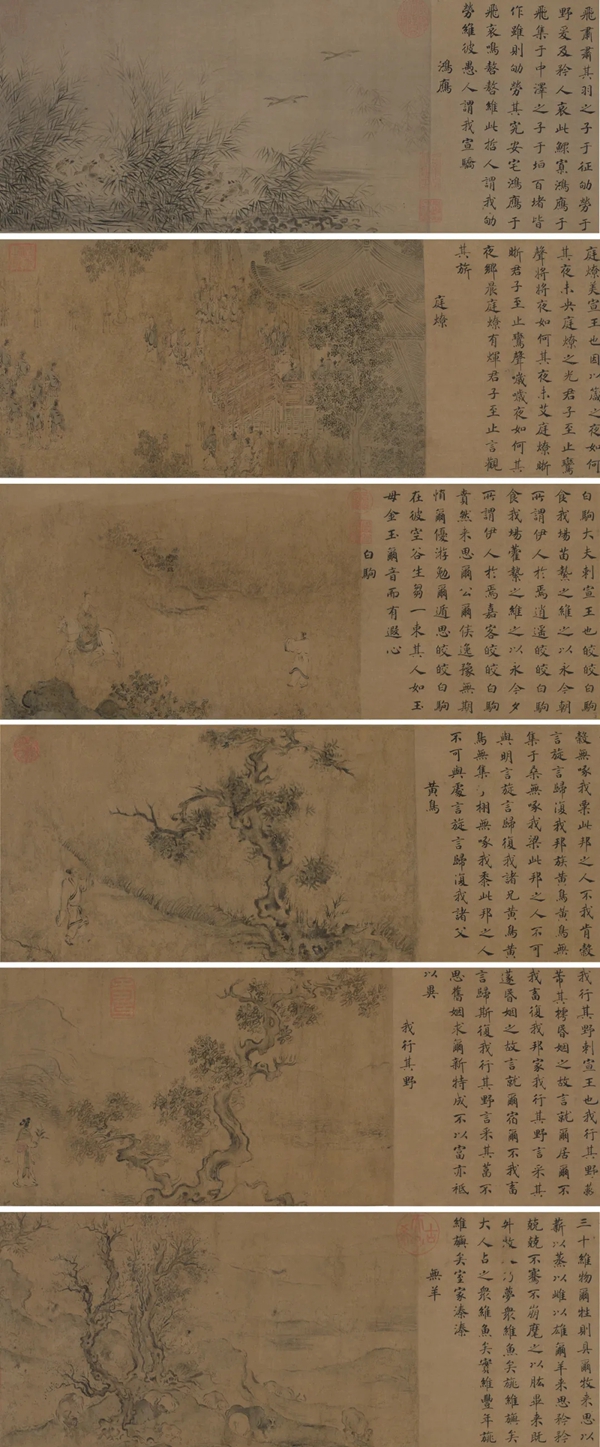 飛肅肅其羽之子于征劬勞于
野爰及矜人哀此鰥寡鴻鴈于
飛集于中澤之子于垣百堵皆
作雖則劬勞其究安宅鴻鴈于
飛哀鳴嗸嗸維此哲人謂我劬
勞維彼愚人謂我宣驕
鴻鴈
庭燎美宣王也因以箴之夜如何
其夜未央庭燎之光君子至止鸞
聲將將夜如何其夜未艾庭燎晣
晣君子至止鸞聲噦噦夜如何其
夜鄉晨庭燎有煇君子至止言觀
其旂
庭燎
白駒大夫刺宣王也皎皎白駒
食我場苗縶之維之以永今朝
所謂伊人於焉逍遙皎皎白駒
食我場藿縶之維之以永今夕
所謂伊人於焉嘉客皎皎白駒
賁然来思爾公爾侯逸豫無期
慎爾優游勉爾遁思皎皎白駒
在彼空谷生芻一束其人如玉
毋金玉爾音而有遐心
白駒
穀無啄我粟此邦之人不我肯穀
言旋言歸復我邦族黃鳥黃鳥無
集于桑無啄我粱此邦之人不可
與明言旋言歸復我諸兄黃鳥黃
鳥無集于栩無啄我黍此邦之人
不可與處言旋言歸復我諸父
黃鳥
我行其野刺宣王也我行其野蔽
芾其樗昏姻之故言就爾居爾不
我畜復我邦家我行其野言采其
蓫昏姻之故言就爾宿爾不我畜
言歸斯復我行其野言采其葍不
思舊姻求爾新特成不以富亦祗
以異
我行其野
三十維物爾牲則具爾牧来思以
薪以蒸以雌以雄爾羊来思矜矜
兢兢不騫不崩麾之以肱畢来既
升牧乃夢衆維魚矣旐維旟矣
大人占之衆維魚矣實維豐年旐
維旟矣室家溱溱
無羊